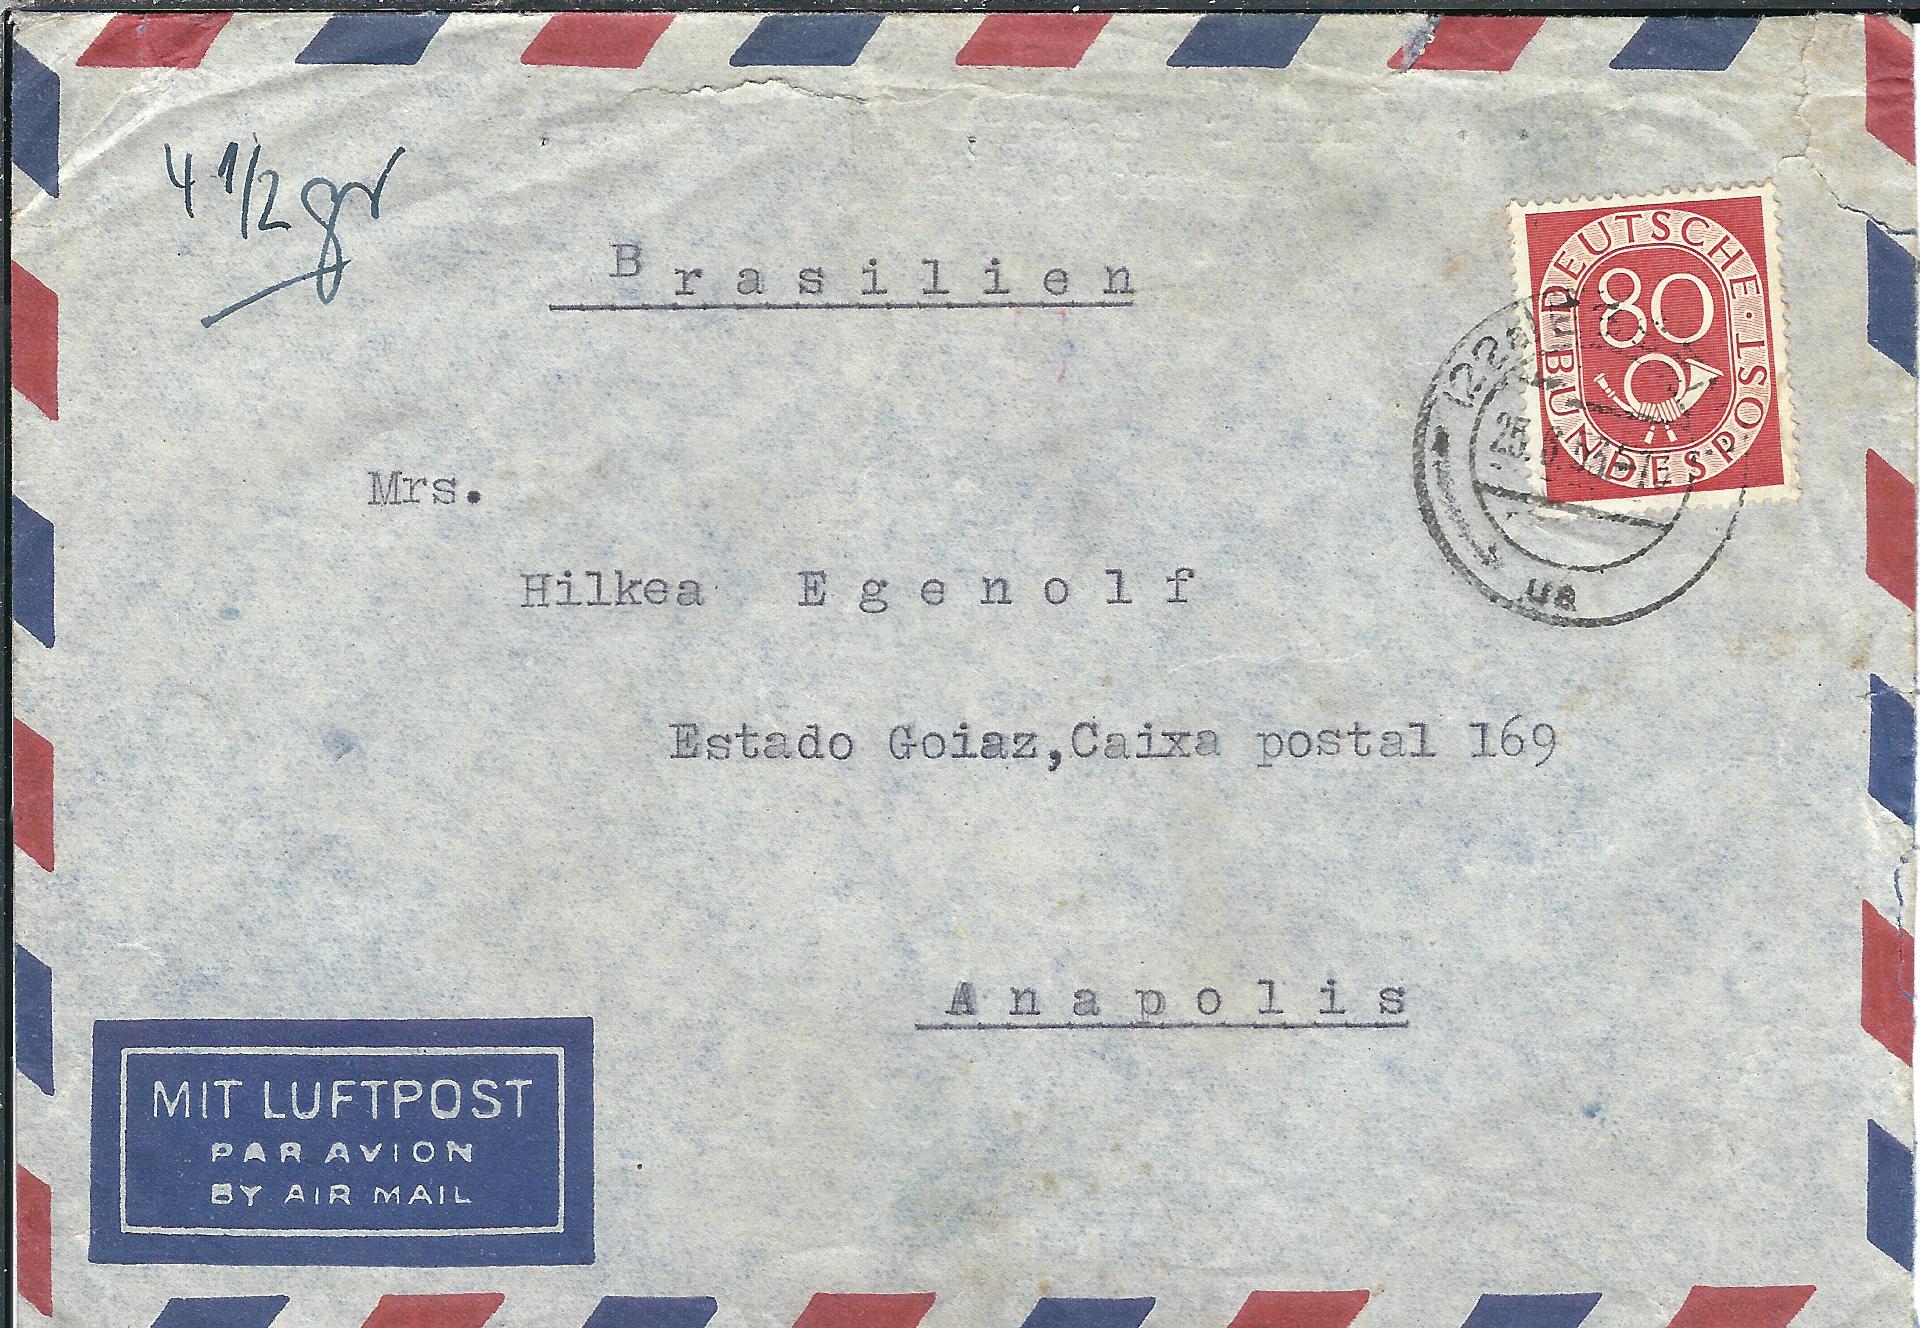 4 1/2 gr
Brasilien
DEUTSCHE · BUNDESPOST
80
Mrs.
Hilkea Egenolf
Estado Goiaz, Caixa postal 169
Anapolis
MIT LUFTPOST
PAR AVION
BY AIR MAIL